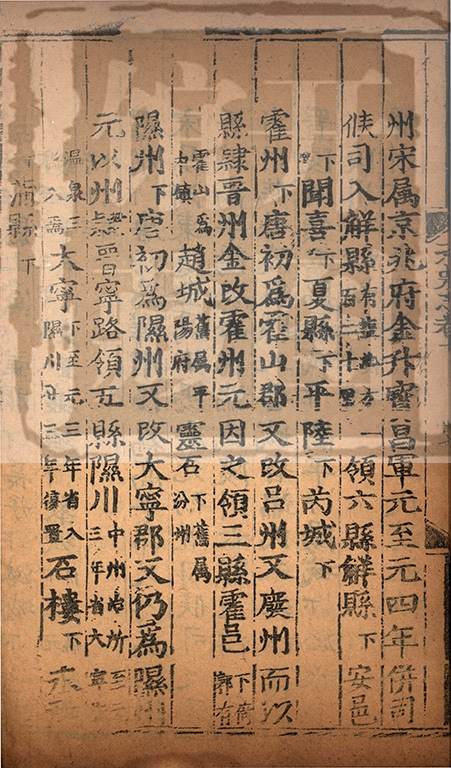 州宋属京兆府金升寶昌軍元至元四年併司
候司入解縣有鹽池方一百二十里領六縣解縣下安邑
下聞喜下夏縣下平陸下芮城下
霍州下唐初為霍山郡又改呂州又廢州而以
縣隸晉州金改霍州元因之領三縣霍邑下倚郭有
霍山為中鎮趙城舊属平陽府靈石下舊属汾州
隰州下唐初為隰州又改大寧郡又仍為隰州
元以州隸晋寧路領五縣隰川中州治所至元三年省大寧
溫泉三入焉大寧下至元三年省入隰川廿三年復置石樓下永
蒲縣下